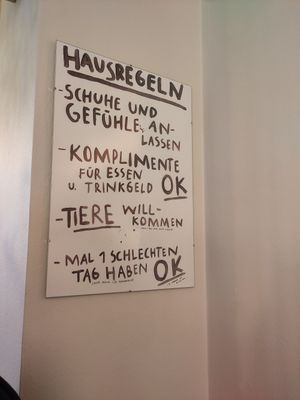 HAUSREGELN
-SCHUHE UND
GEFÜHLE AN-
LASSEN
-KOMPLIMENTE
FÜR ESSEN
U. TRINKGELD OK
-TIERE WILL-
KOMMEN
-MAL 1 SCHLECHTEN
TAG HABEN OK